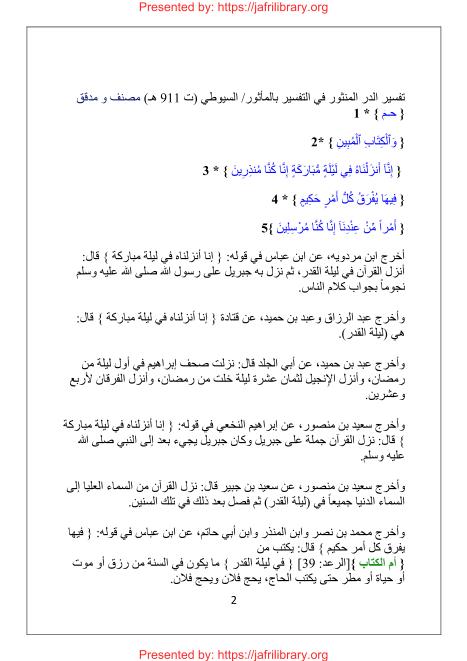 Presented by: https://jafrilibrary.org
تفسير الدر المنثور في التفسير بالمأثور/ السيوطي (ت 911 هـ) مصنف و مدقق
{ حـم } * 1
{ وَٱلْكِتَابِ ٱلْمُبِينِ } *2
{ إِنَّآ أَنزَلْنَاهُ فِي لَيْلَةٍ مُّبَارَكَةٍ إِنَّا كُنَّا مُنذِرِينَ } * 3
{ فِيهَا يُفْرَقُ كُلُّ أَمْرٍ حَكِيمٍ } * 4
{ أَمْراً مِّنْ عِنْدِنَآ إِنَّا كُنَّا مُرْسِلِينَ }5
أخرج ابن مردويه، عن ابن عباس في قوله: { إنا أنزلناه في ليلة مباركة } قال:
أنزل القرآن في ليلة القدر، ثم نزل به جبريل على رسول الله صلى الله عليه وسلم
نجوماً بجواب كلام الناس.
وأخرج عبد الرزاق وعبد بن حميد، عن قتادة { إنا أنزلناه في ليلة مباركة } قال:
هي (ليلة القدر).
وأخرج عبد بن حميد، عن أبي الجلد قال: نزلت صحف إبراهيم في أول ليلة من
رمضان، وأنزل الإنجيل لثمان عشرة ليلة خلت من رمضان، وأنزل الفرقان لأربع
وعشرين.
وأخرج سعيد بن منصور، عن إبراهيم النخعي في قوله: { إنا أنزلناه في ليلة مباركة
} قال: نزل القرآن جملة على جبريل وكان جبريل يجيء بعد إلى النبي صلى الله
عليه وسلم.
وأخرج سعيد بن منصور، عن سعيد بن جبير قال: نزل القرآن من السماء العليا إلى
السماء الدنيا جميعاً في (ليلة القدر) ثم فصل بعد ذلك في تلك السنين.
وأخرج محمد بن نصر وابن المنذر وابن أبي حاتم، عن ابن عباس في قوله: { فيها
يفرق كل أمر حكيم } قال: يكتب من
{ أم الكتاب }[الرعد: 39] { في ليلة القدر } ما يكون في السنة من رزق أو موت
أو حياة أو مطر حتى يكتب الحاج، يحج فلان ويحج فلان.
2
Presented by: https://jafrilibrary.org